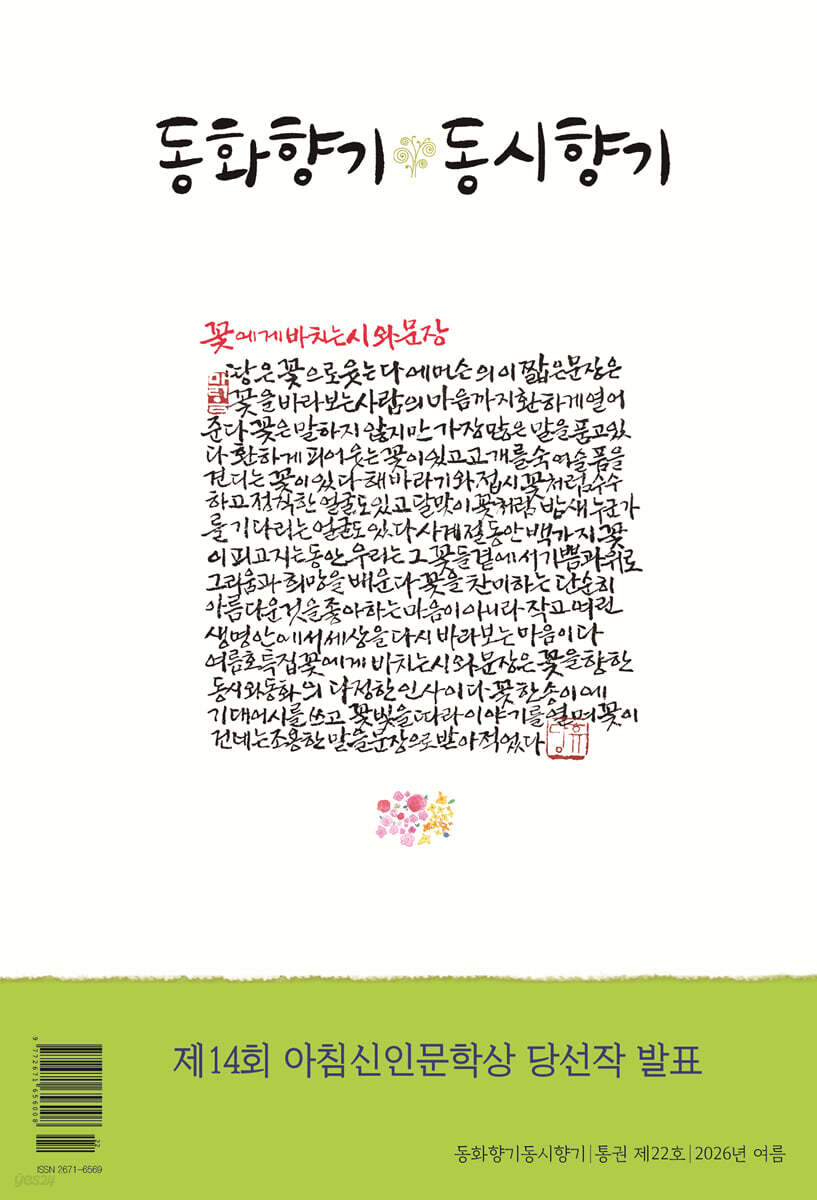 동화향기 동시향기
꽃에게 바치는 시와 문장
땅은 꽃으로 웃는다 에머슨의 이 짧은 문장은
꽃을 바라보는 사람의 마음까지 환하게 열어
준다 꽃은 말하지 않지만 가장 많은 말을 품고 있
다 환하게 피어 웃는 꽃이 있고 고개를 숙여 슬픔을
견디는 꽃이 있다 해바라기와 접시꽃처럼 수수
하고 정직한 얼굴도 있고 달맞이꽃처럼 밤새 누군가
를 기다리는 얼굴도 있다 사계절 동안 백 가지 꽃
이 피고 지는 동안 우리는 그 꽃들 곁에서 기쁨과 위로
그리움과 희망을 배운다 꽃을 찬미하는 단순히
아름다운 것을 좋아하는 마음이 아니라 작고 여린
생명 안에서 세상을 다시 바라보는 마음이다
여름호 특집 꽃에게 바치는 시와 문장은 꽃을 향한
동시와 동화의 다정한 인사이다 꽃 한 송이에
기대어 시를 쓰고 꽃빛을 따라 이야기를 열며 꽃이
건네는 조용한 말을 문장으로 받아 적었다
제14회 아침신인문학상 당선작 발표
동화향기동시향기|통권 제22호|2026년 여름
9 772671 656008
22
ISSN 2671-6569
yes24